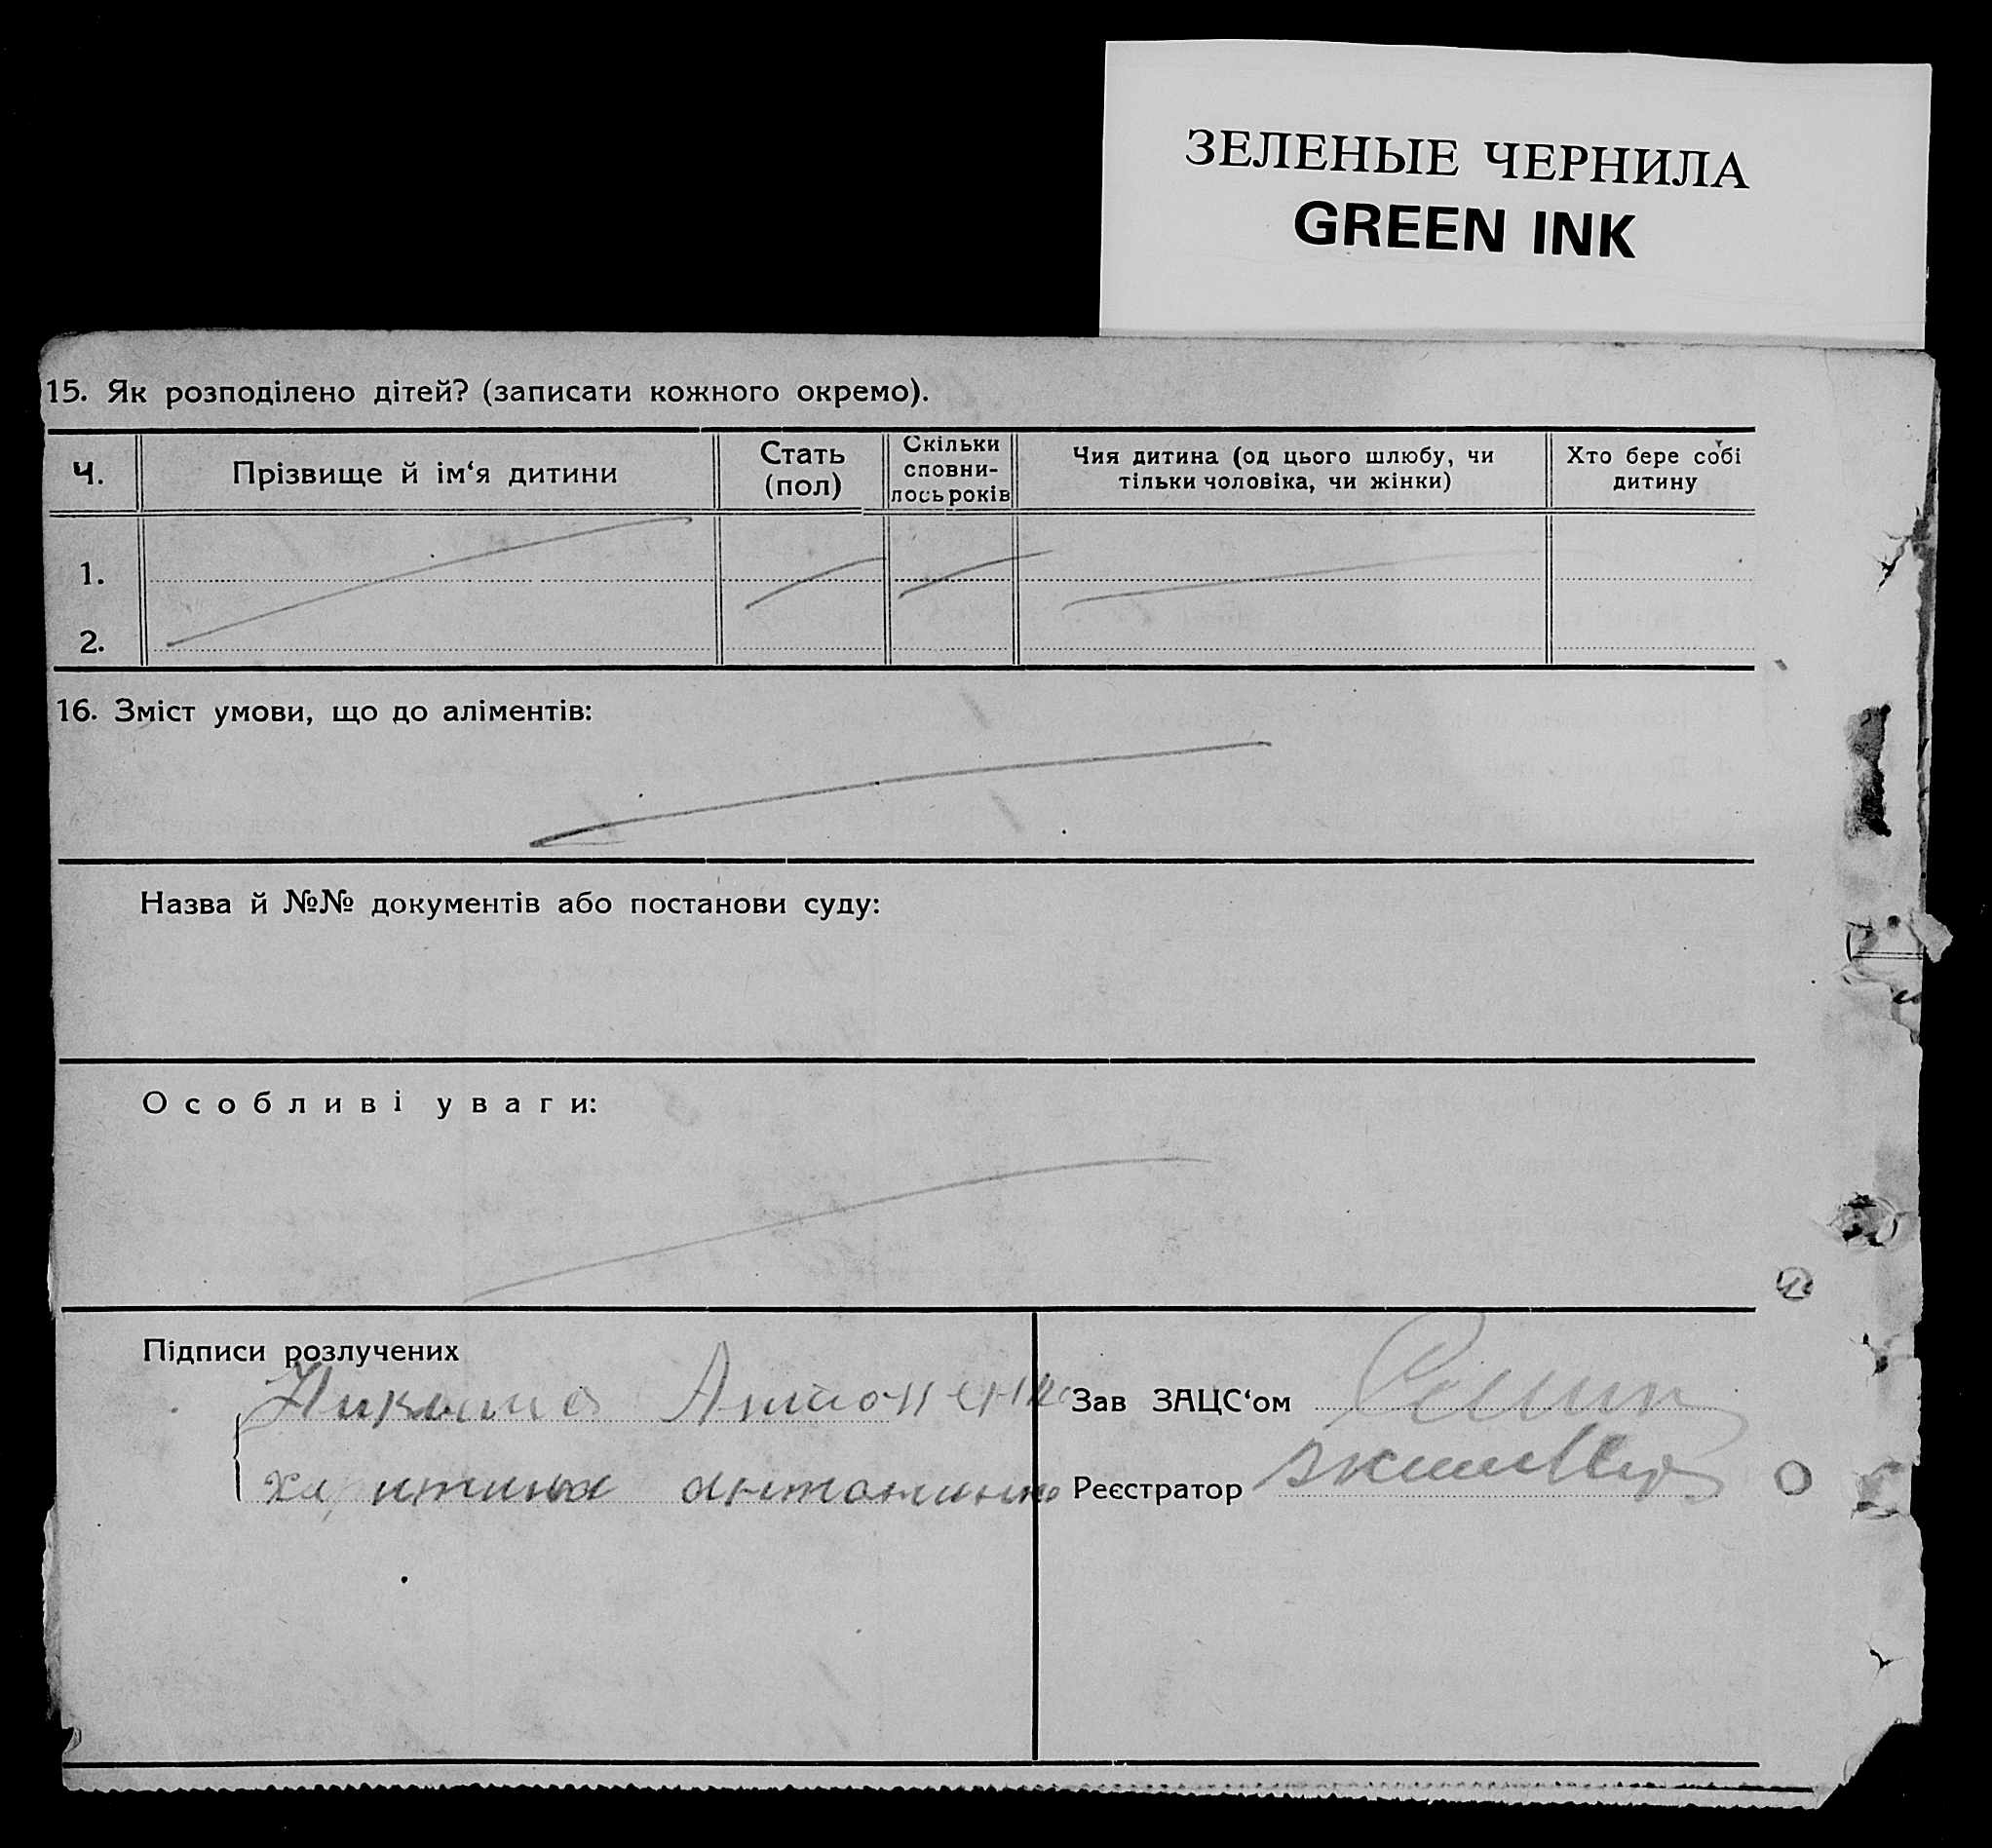 ЗЕЛЕНЫЕ ЧЕРНИЛА
GREEN INK
15. Як розподілено дітей? (записати кожного окремо).
Ч.
Прізвище й ім‘я дитини
Стать
(пол)
Скільки
сповни-
лось років
Чия дитина (од цього шлюбу, чи
тільки чоловіка, чи жінки)
Хто бере собі
дитину
1.
2.
16. Зміст умови, що до аліментів:
Назва й №№ документів або постанови суду:
Особливі уваги:
Підписи розлучених
Зав ЗАЦС‘ом
Реєстратор